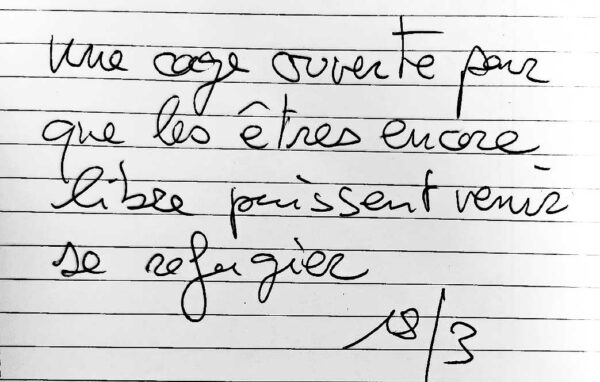 une cage ouverte pour
que les êtres encore
libre puissent venir
se refugier
18/3